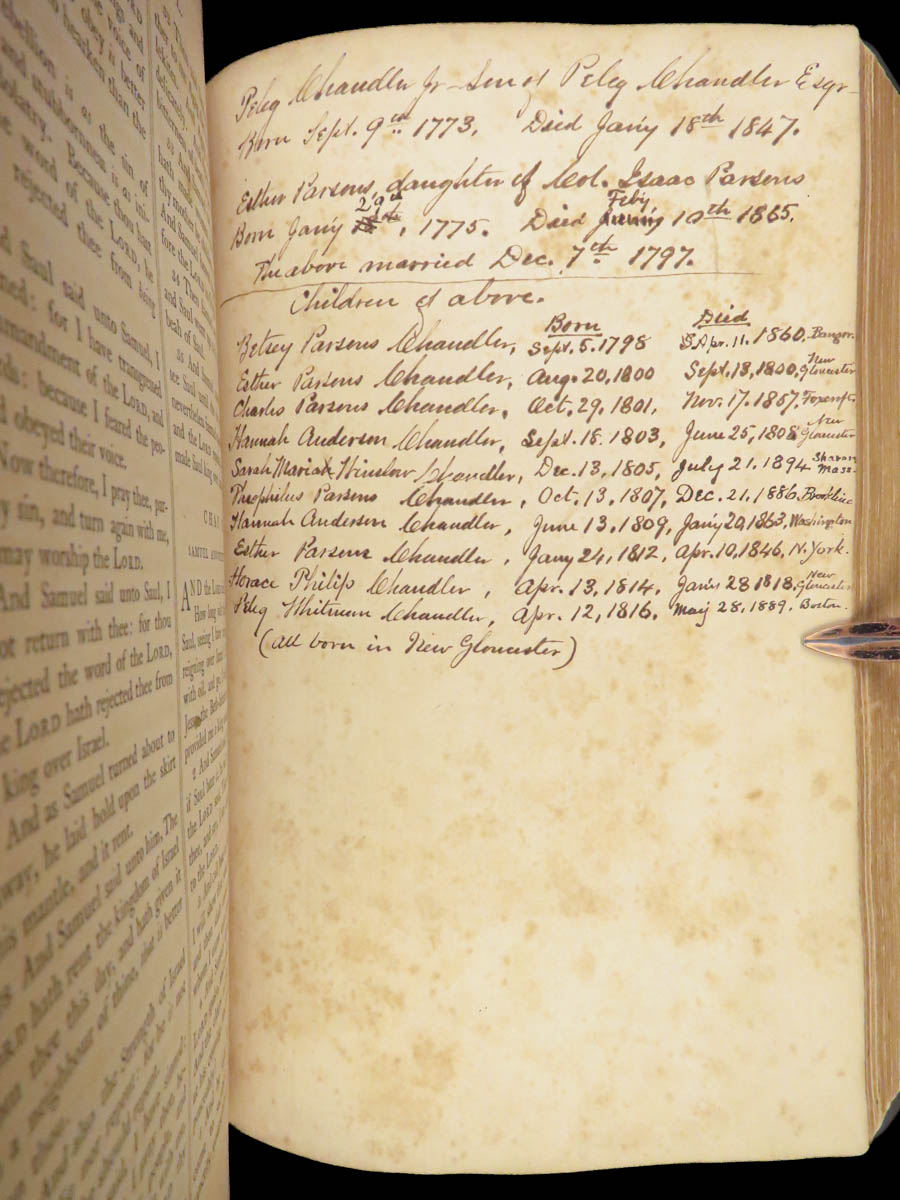 ellion is as the sin of
and stubbornness is as ini-
olatry. Because thou hast
word of the LORD, he
rejected thee from being
d Saul said unto Samuel, I
ned: for I have transgressed
mmandment of the LORD, and
rds: because I feared the peo-
d obeyed their voice.
Now therefore, I pray thee, par-
y sin, and turn again with me,
may worship the LORD.
And Samuel said unto Saul, I
not return with thee: for thou
rejected the word of the LORD,
e LORD hath rejected thee from
king over Israel.
And as Samuel turned about to
way, he laid hold upon the skirt
his mantle, and it rent.
And Samuel said unto him, The
ORD hath rent the kingdom of Israel
thee this day, and hath given it
a neighbour of thine, that is better
Strength of Israel
CHA
AND the LORD
How long
Saul, seeing I
reigning over
with oil, and
Peleg Chandler Jr - Son of Peleg Chandler Esqr
Born Sept. 9th 1773. Died Jan'y 18th 1847.
Esther Parsons, daughter of Col. Isaac Parsons
29th Feby.
Born Jan'y 1775. Died 10th 1865.
The above married Dec. 7th 1797.
Children of above.
Born Died
Betsey Parsons Chandler, Sept. 5. 1798 Apr. 11. 1860, Bangor.
Esther Parsons Chandler, Aug. 20, 1800 Sept. 18, 1800, New Gloucester
Charles Parsons Chandler, Oct. 29, 1801, Nov. 17. 1857, Foxcroft
Hannah Anderson Chandler, Sept. 18. 1803, June 25, 1808 New Gloucester
Sarah Mariah Winslow Chandler, Dec. 13, 1805, July 21. 1894 Sharon Mass.
Theophilus Parsons Chandler, Oct. 13, 1807, Dec. 21. 1886. Brookline
Hannah Anderson Chandler, June 13, 1809, Jan'y 20, 1863, Washington
Esther Parsons Chandler, Jany 24, 1812, Apr. 10, 1846, N. York.
Horace Philip Chandler, Apr. 13, 1814, Jan'y 28 1818, New Gloucester
Peleg Whitman Chandler, Apr. 12, 1816, May 28, 1889. Boston.
(all born in New Gloucester)